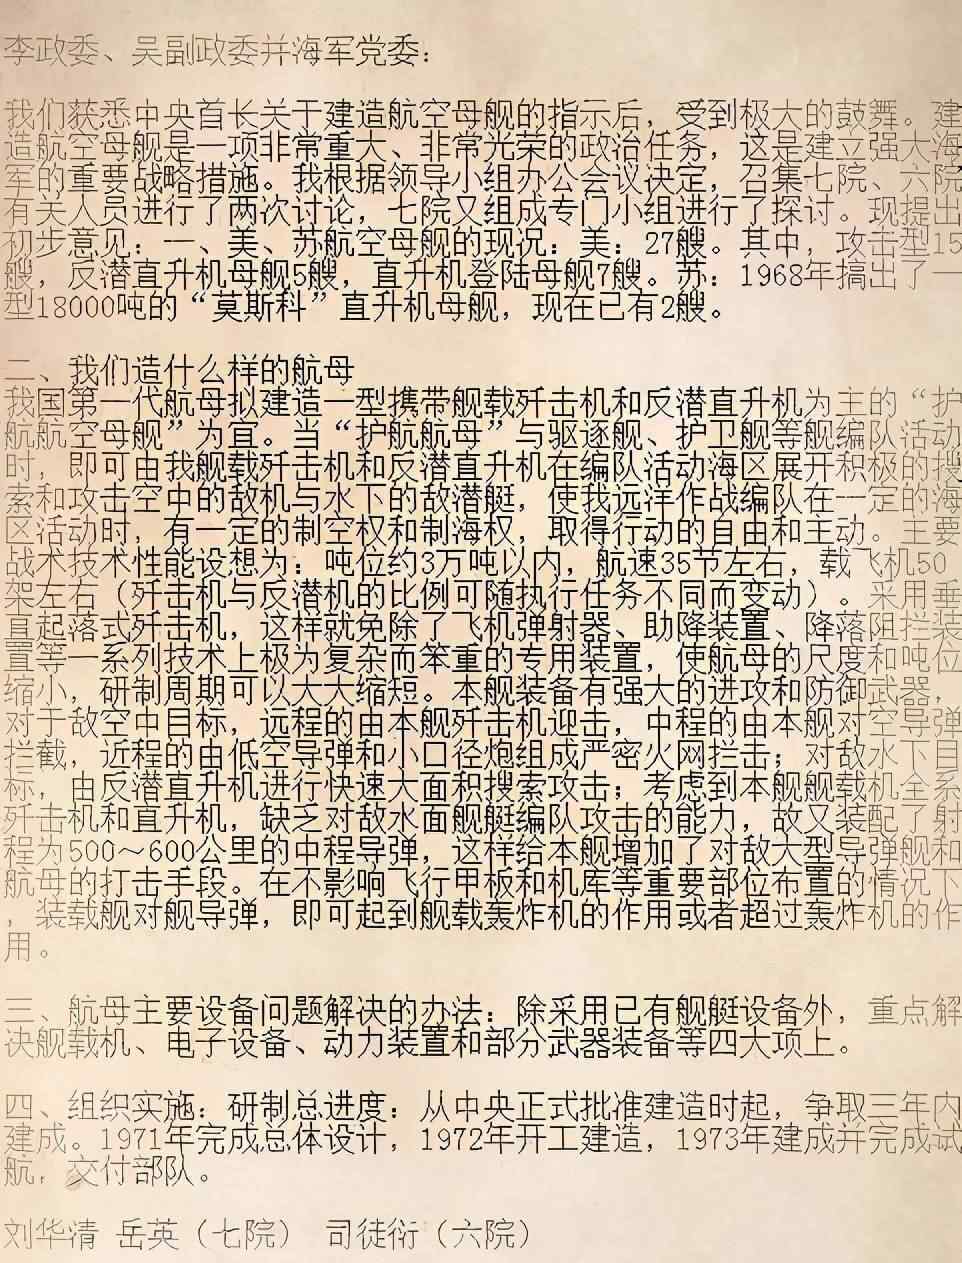 李政委、吴副政委并海军党委：
我们获悉中央首长关于建造航空母舰的指示后，受到极大的鼓舞。建
造航空母舰是一项非常重大、非常光荣的政治任务，这是建立强大海
军的重要战略措施。我根据领导小组办公会议决定，召集七院、六院
有关人员进行了两次讨论，七院又组成专门小组进行了探讨。现提出
初步意见：一、美、苏航空母舰的现况：美：27艘。其中，攻击型15
艘，反潜直升机母舰5艘，直升机登陆母舰7艘。苏：1968年搞出了一
型18000吨的“莫斯科”直升机母舰，现在已有2艘。
二、我们造什么样的航母
我国第一代航母拟建造一型携带舰载歼击机和反潜直升机为主的“护
航航空母舰”为宜。当“护航航母”与驱逐舰、护卫舰等舰编队活动
时，即可由我舰载歼击机和反潜直升机在编队活动海区展开积极的搜
索和攻击空中的敌机与水下的敌潜艇，使我远洋作战编队在一定的海
区活动时，有一定的制空权和制海权，取得行动的自由和主动。主要
战术技术性能设想为：吨位约3万吨以内，航速35节左右，载飞机50
架左右（歼击机与反潜机的比例可随执行任务不同而变动）。采用垂
直起落式歼击机，这样就免除了飞机弹射器、助降装置、降落阻拦装
置等一系列技术上极为复杂而笨重的专用装置，使航母的尺度和吨位
缩小，研制周期可以大大缩短。本舰装备有强大的进攻和防御武器，
对于敌空中目标，远程的由本舰歼击机迎击，中程的由本舰对空导弹
拦截，近程的由低空导弹和小口径炮组成严密火网拦击；对敌水下目
标，由反潜直升机进行快速大面积搜索攻击；考虑到本舰舰载机全系
歼击机和直升机，缺乏对敌水面舰艇编队攻击的能力，故又装配了射
程为500～600公里的中程导弹，这样给本舰增加了对敌大型导弹舰和
航母的打击手段。在不影响飞行甲板和机库等重要部位布置的情况下
，装载舰对舰导弹，即可起到舰载轰炸机的作用或者超过轰炸机的作
用。
三、航母主要设备问题解决的办法：除采用已有舰艇设备外，重点解
决舰载机、电子设备、动力装置和部分武器装备等四大项上。
四、组织实施：研制总进度：从中央正式批准建造时起，争取三年内
建成。1971年完成总体设计，1972年开工建造，1973年建成并完成试
航，交付部队。
刘华清 岳英（七院） 司徒衍（六院）